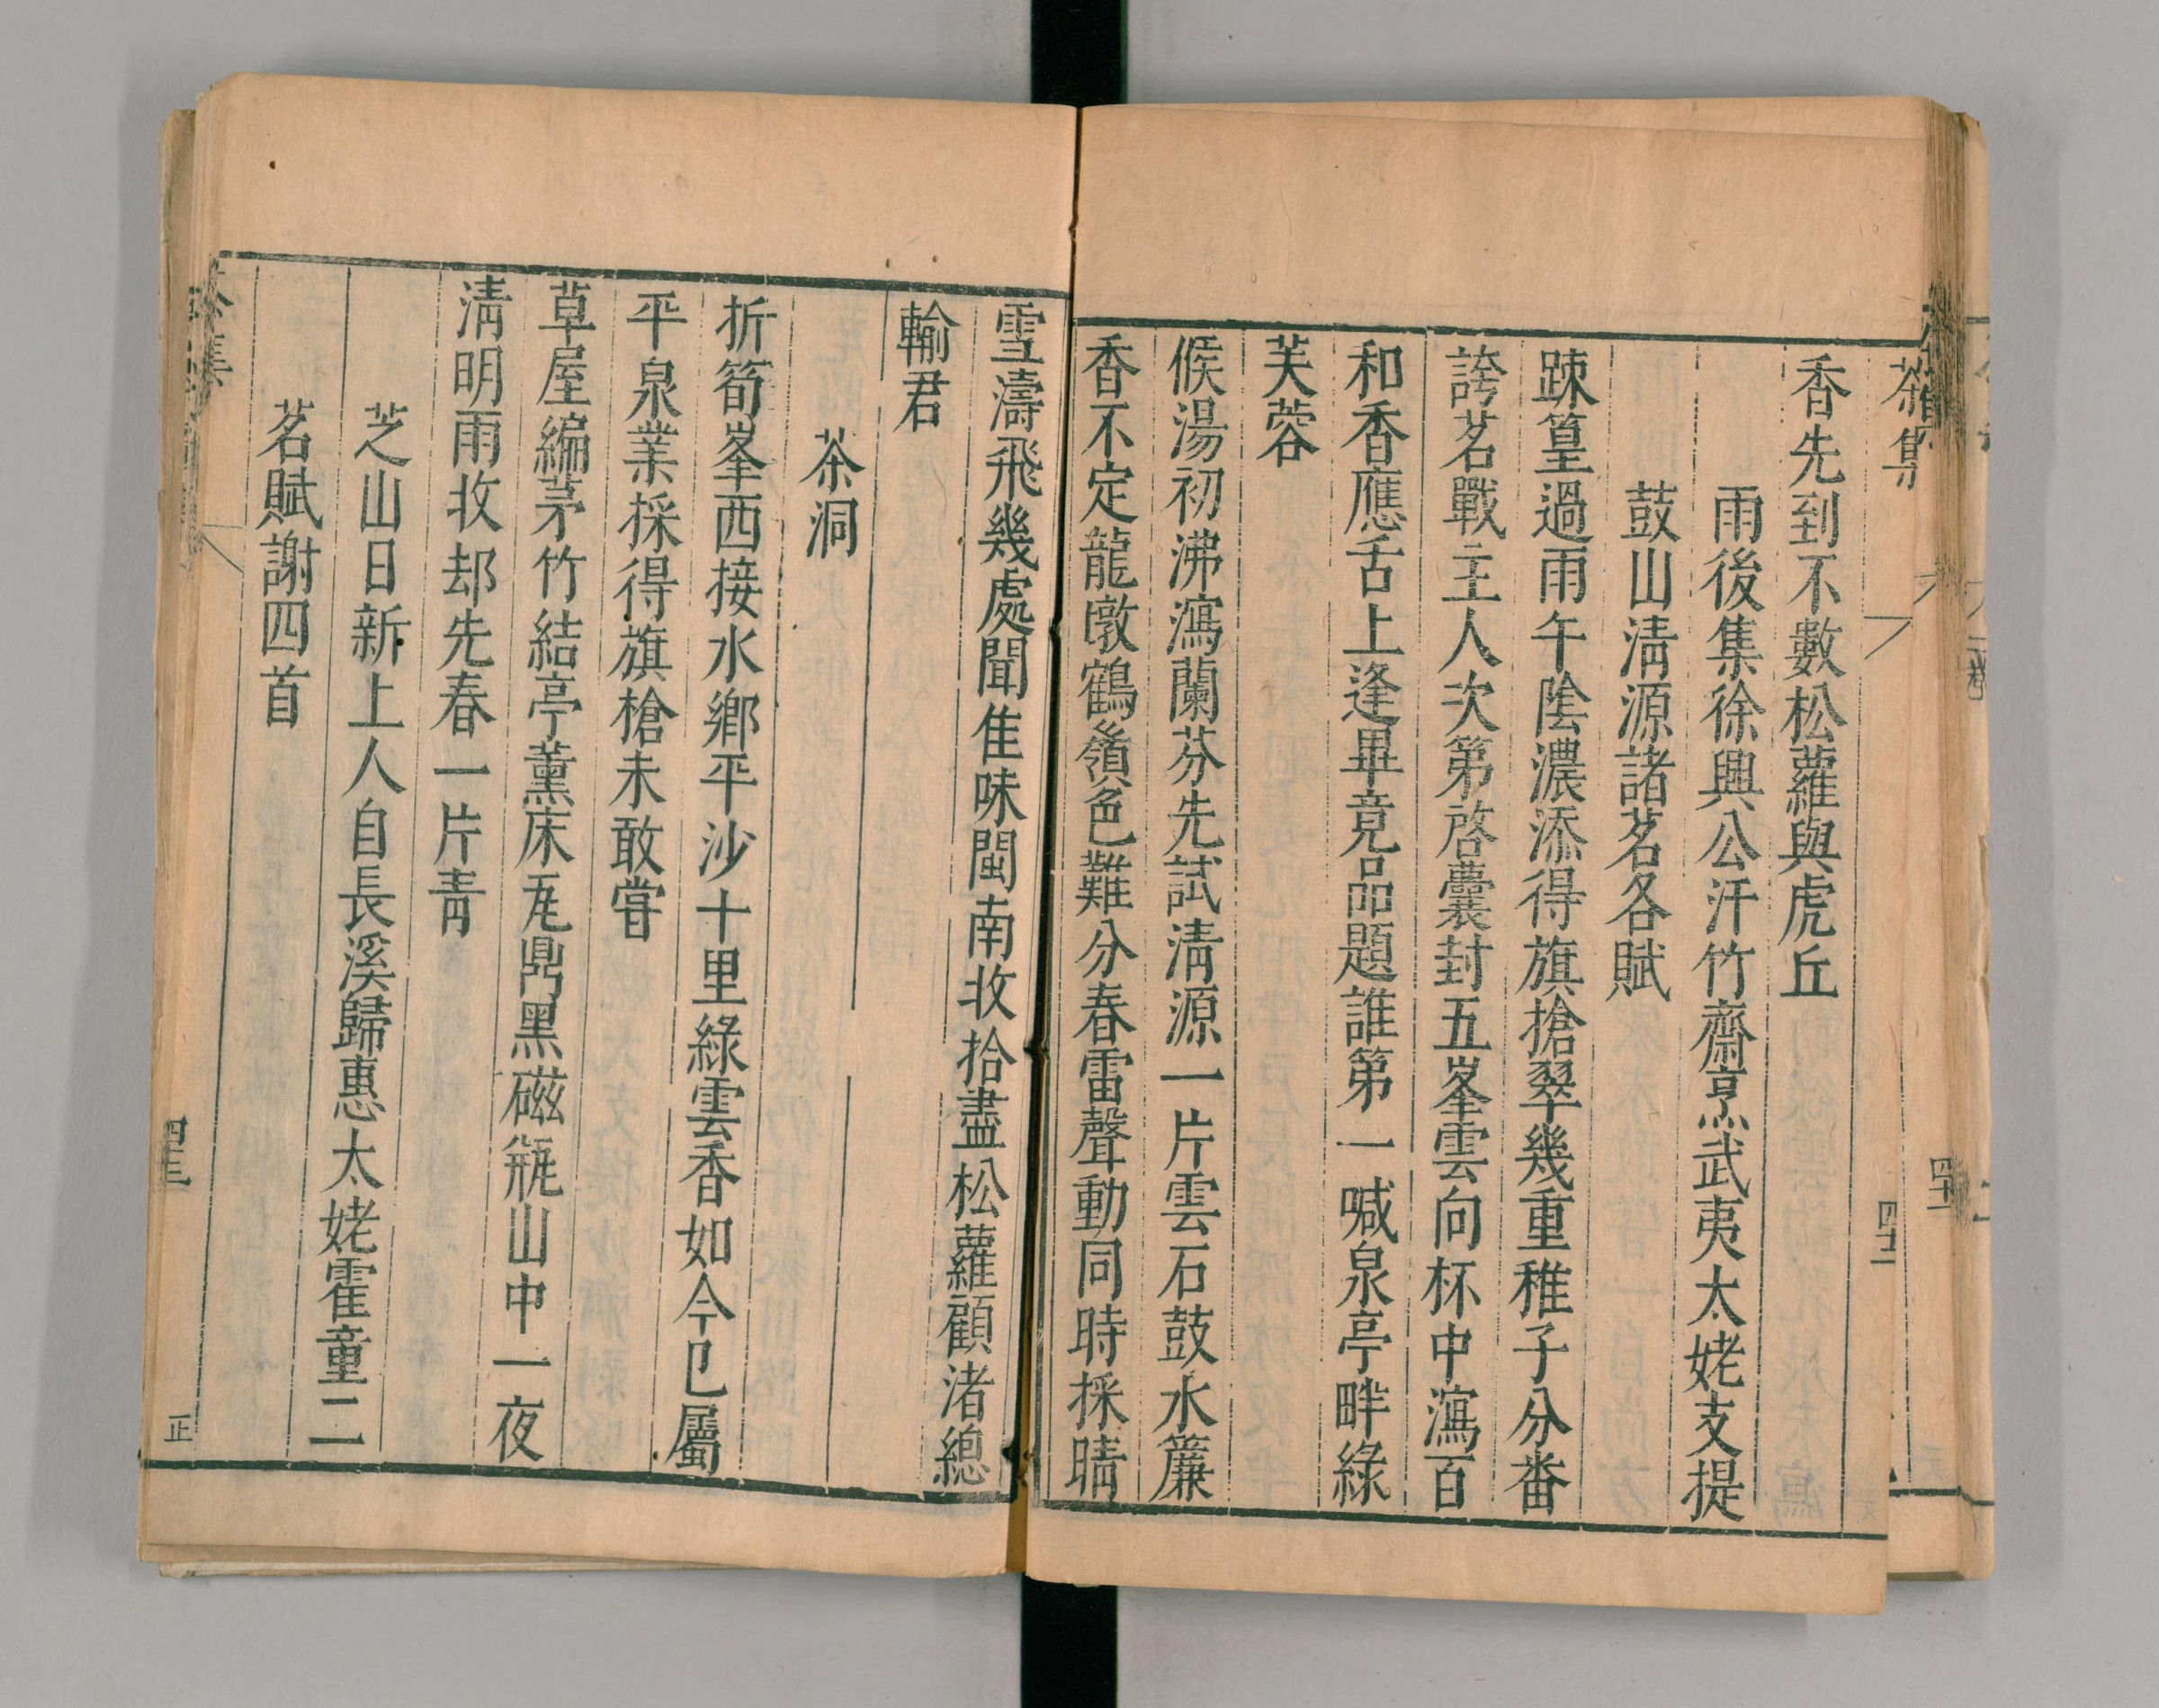 茶集
四十二
香先到不數松蘿與虎丘
雨後集徐興公汗竹齋烹武夷太姥支提
鼓山淸源諸茗各賦
踈篁過雨午陰濃添得旗搶翠幾重稚子分番
誇茗戰主人次第啓囊封五峯雲向杯中瀉百
和香應舌上逢畢竟品題誰第一喊泉亭畔綠
芙蓉
候湯初沸瀉蘭芬先試淸源一片雲石鼓水簾
香不定龍墩鶴嶺色難分春雷聲動同時採晴
雪濤飛幾處聞佳味閩南收拾盡松蘿顧渚總
輸君
茶洞
折筍峯西接水鄉平沙十里綠雲香如今已屬
平泉業採得旗槍未敢嘗
草屋編茅竹結亭薰床瓦鼎黑磁瓶山中一夜
淸明雨收却先春一片靑
芝山日新上人自長溪歸惠太姥霍童二
茗賦謝四首
集
正